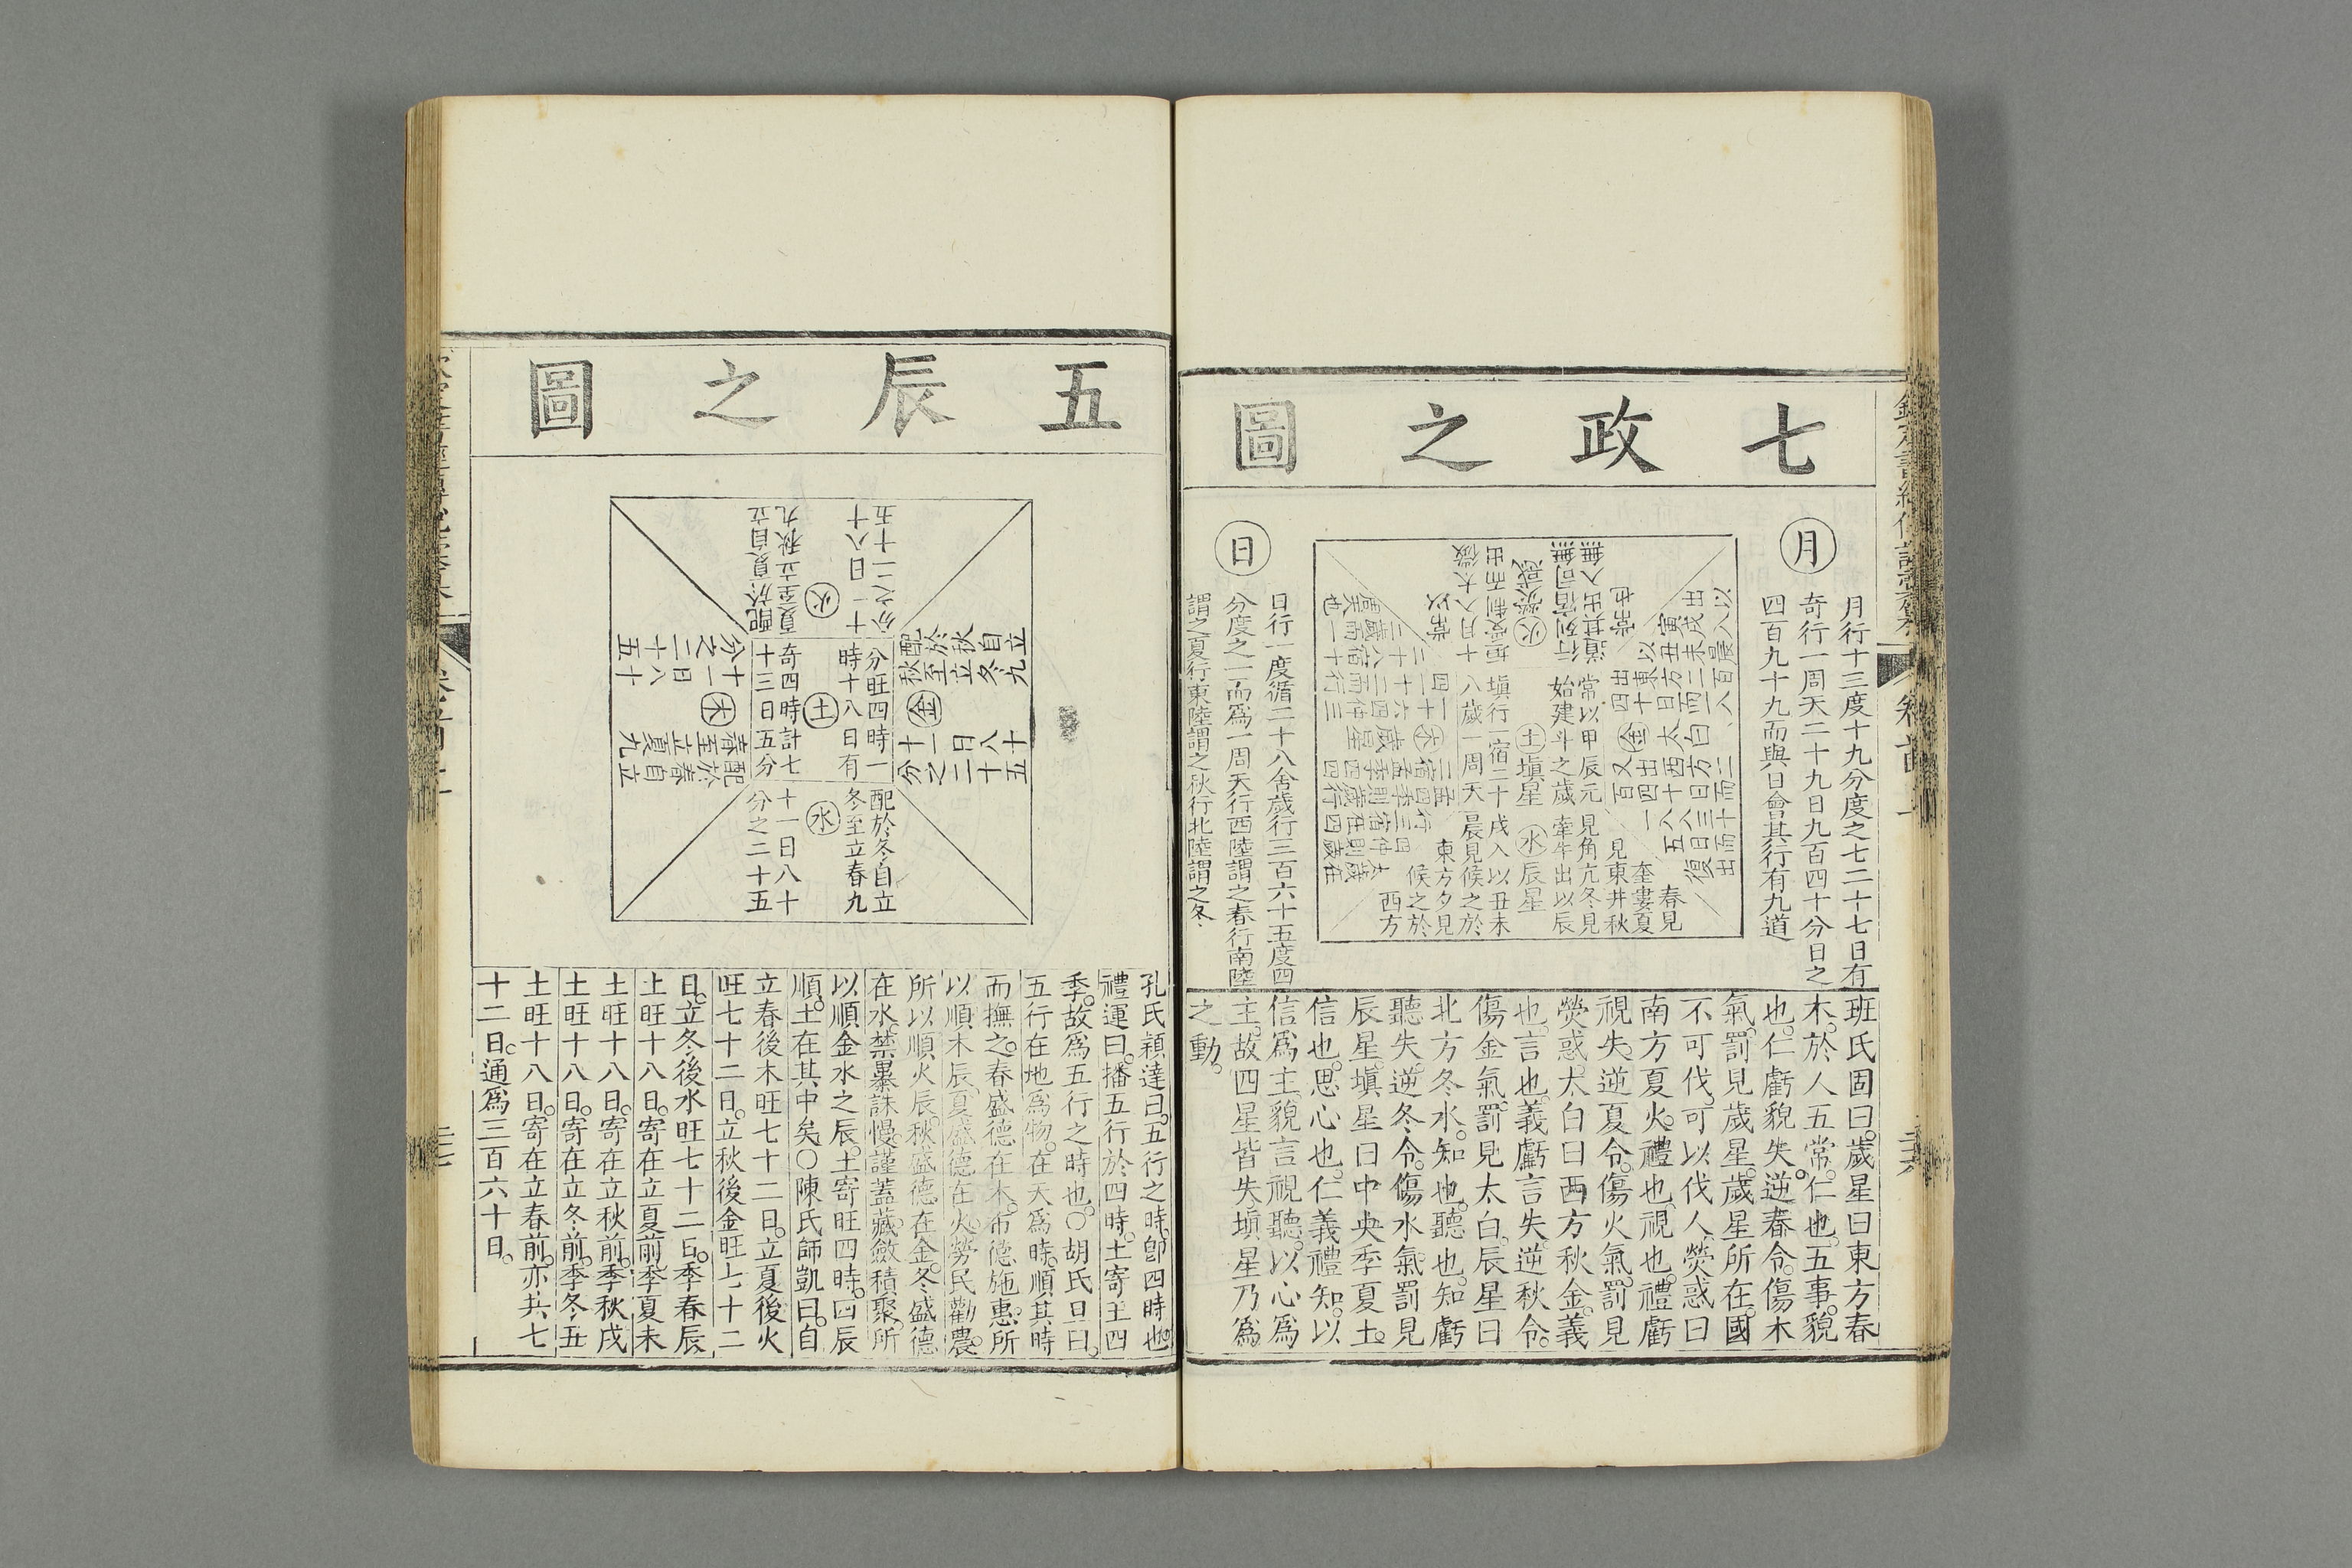 七政之圖
月
月行十三度十九分度之七二十七日有
奇行一周天二十九日九百四十分日之
四百九十九而與日會其行有九道
日
日行一度循二十八舍歲行三百六十五度四
分度之一而爲一周天行西陸謂之春行南陸
謂之夏行東陸謂之秋行北陸謂之冬
火熒惑
常以
十月入太微
垣受制而出
行列宿司無
道其出入無
常也
土塡星
常以甲辰元
始建斗之歲
塡行一宿二十
八歲一周天
水辰星
春見
奎婁夏
見東井秋
見角亢冬見
牽牛出以辰
戌入以丑未
晨見候之於
東方夕見
候之於
西方
金
木
班氏固曰歲星曰東方春
木。於人五常。仁也。五事。貌
也。仁虧貌失。逆春令。傷木
氣。罰見歲星。歲星所在。國
不可伐。可以伐人。熒惑曰
南方夏火。禮也。視也。禮虧
視失。逆夏令。傷火氣。罰見
熒惑。太白曰西方秋金。義
也。言也。義虧言失。逆秋令。
傷金氣。罰見太白。辰星曰
北方冬水。知也。聽也。知虧
聽失。逆冬令。傷水氣。罰見
辰星。塡星曰中央季夏土。
信也。思心也。仁義禮知。以
信爲主。貌言視聽。以心爲
主。故四星皆失。塡星乃爲
之動。
五辰之圖
火
配於夏自立
夏至立秋九
十一日八十
分之二十五
金
配於
秋自立
秋至立冬九
十一日八十
分之二十五
土
分旺四時一
時十八日有
奇四時計七
十三日五分
木
配於春自立
春至立夏九
十一日八十
分之二十五
水
配於冬自立
冬至立春九
十一日八十
分之二十五
孔氏穎達曰。五行之時。卽四時也。
禮運曰。播五行於四時。土寄王四
季。故爲五行之時也。○胡氏旦曰。
五行在地爲物。在天爲時。順其時
而撫之。春盛德在木。布德施惠。所
以順木辰。夏盛德在火。勞民勸農。
所以順火辰。秋盛德在金。冬盛德
在水。禁暴誅慢。謹蓋藏。斂積聚。所
以順金水之辰。土寄旺四時。四辰
順。土在其中矣。○陳氏師凱曰。自
立春後木旺七十二日。立夏後火
旺七十二日。立秋後金旺七十二
日。立冬後水旺七十二日。季春辰
土旺十八日。寄在立夏前。季夏未
土旺十八日。寄在立秋前。季秋戌
土旺十八日。寄在立冬前。季冬丑
土旺十八日。寄在立春前。亦共七
十二日。通爲三百六十日。